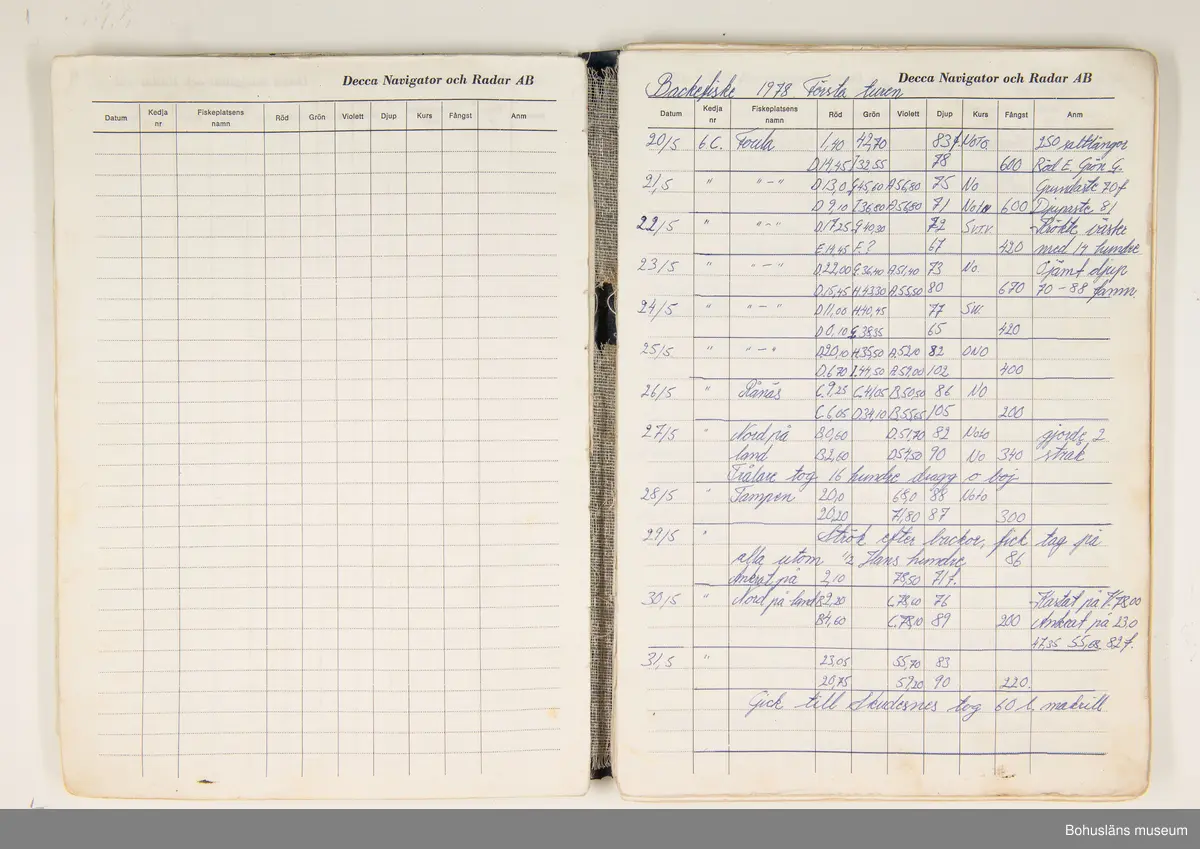 Decca Navigator och Radar AB
Datum Kedja nr Fiskeplatsens namn Röd Grön Violett Djup Kurs Fångst Anm
Decca Navigator och Radar AB
Backefiske 1978 Första turen
Datum Kedja nr Fiskeplatsens namn Röd Grön Violett Djup Kurs Fångst Anm
20/5 6.C. Foula 1,40 42,70 83f NoTo 250
D.14,45 I 32.55 78 600 Röd E. Grön G.
21/5 " "-" D.13,0 G.45,60 A.56,80 75 No Grundaste 70f
D 9,10 I 36,80 A.56,80 71 Noto 600 Djupaste 81
22/5 " "-" D.17,25 G 40,30 72 Sv.T.V. Sträkte väster
E.14,45 F.? 67 420 med 14 hundre
23/5 " "-" D.22,00 G.36,40 A.51,40 73 No. Ojämt djup
D.15,45 H.43,30 A.55,50 80 670 70-88 famn.
24/5 " "-" D.11,00 H.40,45 77 SW.
D.0,10 I 38,35 65 420
25/5 " "-" D.20,10 H.35,50 A.52,10 82 ONO
D.6,70 I.44,50 A.57,00 102 400
26/5 " Rånäs C.9,25 C.41,05 B.50,50 86 NO
C.6,05 D.34,10 B.55,65 105 200
27/5 " Nord på B.0,60 D.51,70 82 Noto gjorde 2
land B.2,60 D.54,50 90 No 340 stråk
Trålare tog 16 hundre dragg o boj
28/5 " Tampen 20,0 68,0 88 Noto
20,20 71,80 87 300
29/5 " Strök efter backor, fick tag på
alla utom 1/2 Hans hundre. 86
Ankrat på 2,10 78,50 71f.
30/5 " Nord på land B.2,20 C.78,60 76 Kastat på V.78,00
B.4,60 C.78,10 89 200 Ankrat på 23,0
47,35 55,08 82f.
31/5 " 23,05 55,70 83
20,75 57,20 90 220.
Gick till Skudesnes tog 60 l. makrill
Bohusläns museum